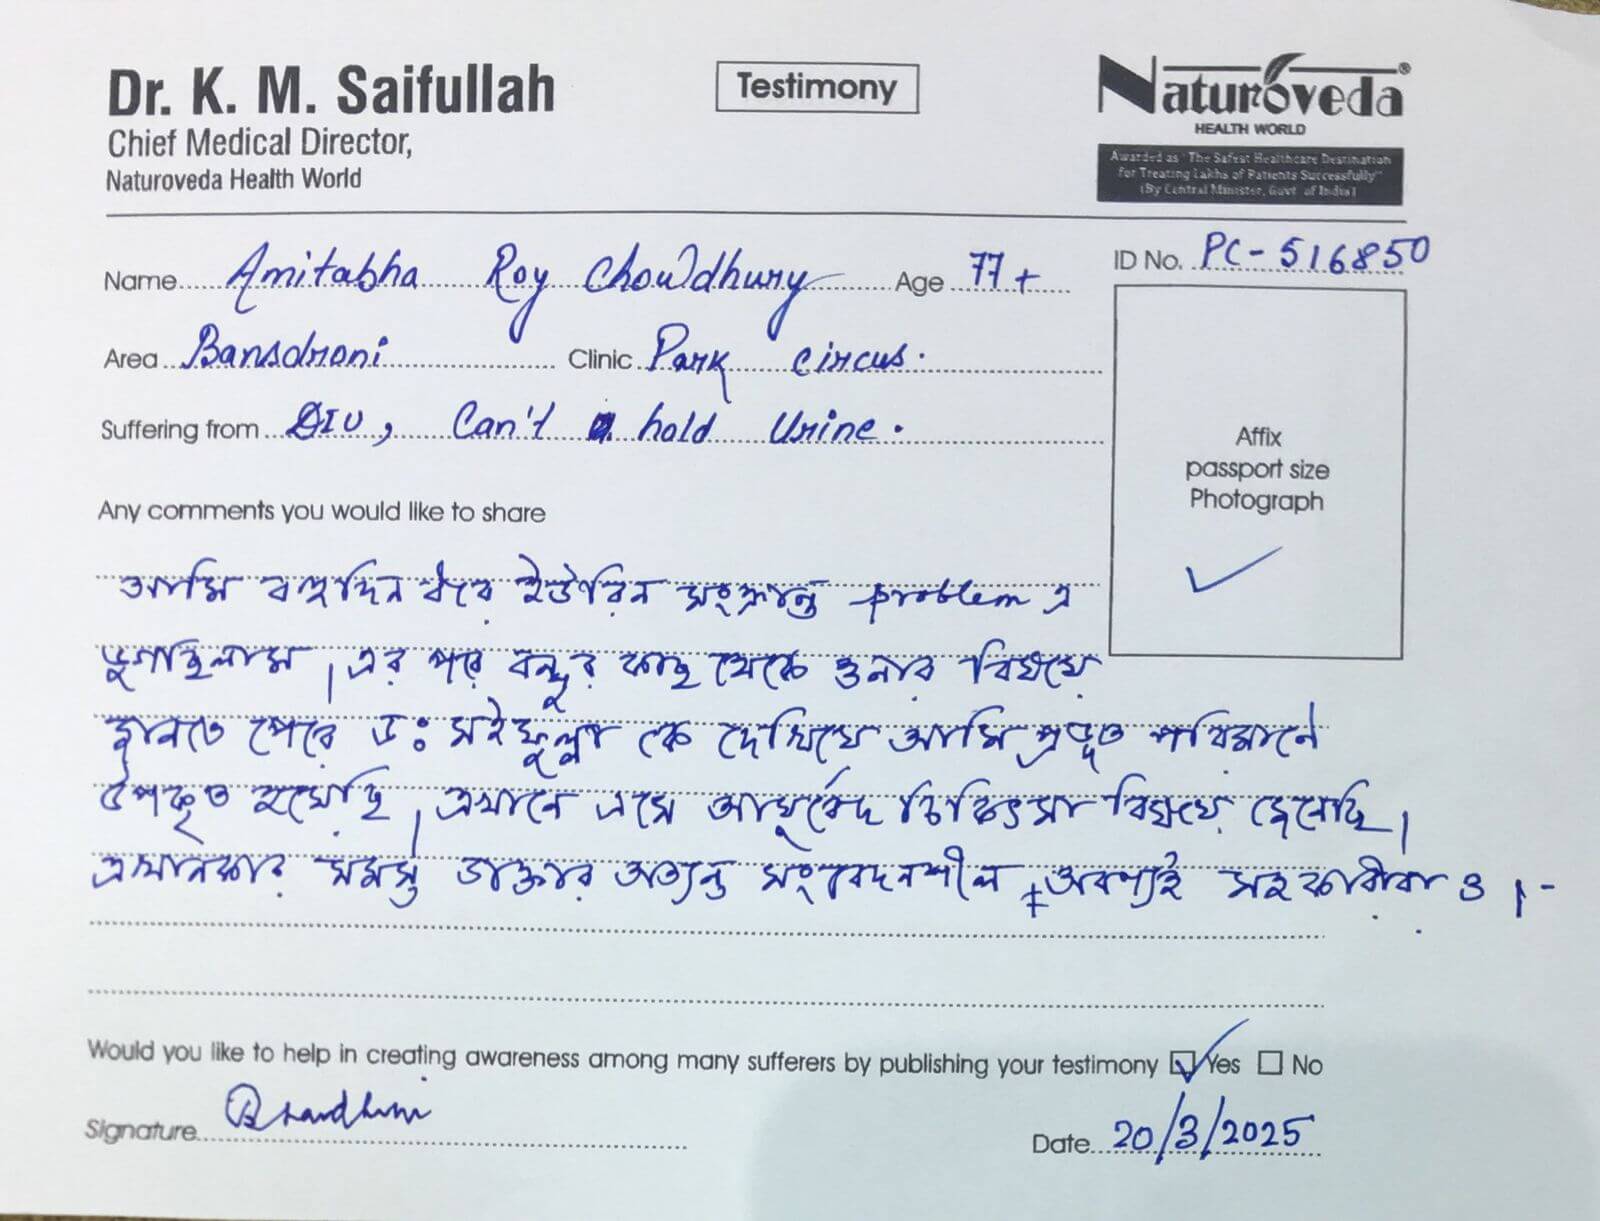 Dr. K. M. Saifullah
Chief Medical Director,
Naturoveda Health World
Testimony
Naturoveda®
HEALTH WORLD
Awarded as "The Safest Healthcare Destination
for Treating Lakhs of Patients Successfully"
(By Central Minister, Govt. of India)
Name Amitabha Roy Chowdhury Age 77+
ID No. PC-516850
Area Bansdroni Clinic Park Circus.
Suffering from DIU, Can't hold Urine.
Affix
passport size
Photograph
Any comments you would like to share
আমি বহুদিন ধরে ইউরিন সংক্রান্ত problem এ
ভুগছিলাম। এর পরে বন্ধুর কাছ থেকে ওনার বিষয়ে
জানতে পেরে ডঃ সইফুল্লা কে দেখিয়ে আমি প্রভূত পরিমানে
উপকৃত হয়েছি। এখানে এসে আয়ুর্বেদ চিকিৎসা বিষয়ে জেনেছি।
এখানকার সমস্ত ডাক্তার অত্যন্ত সংবেদনশীল + অবশ্যই সহকারীরা ও।-
Would you like to help in creating awareness among many sufferers by publishing your testimony Yes No
Signature
Date 20/3/2025